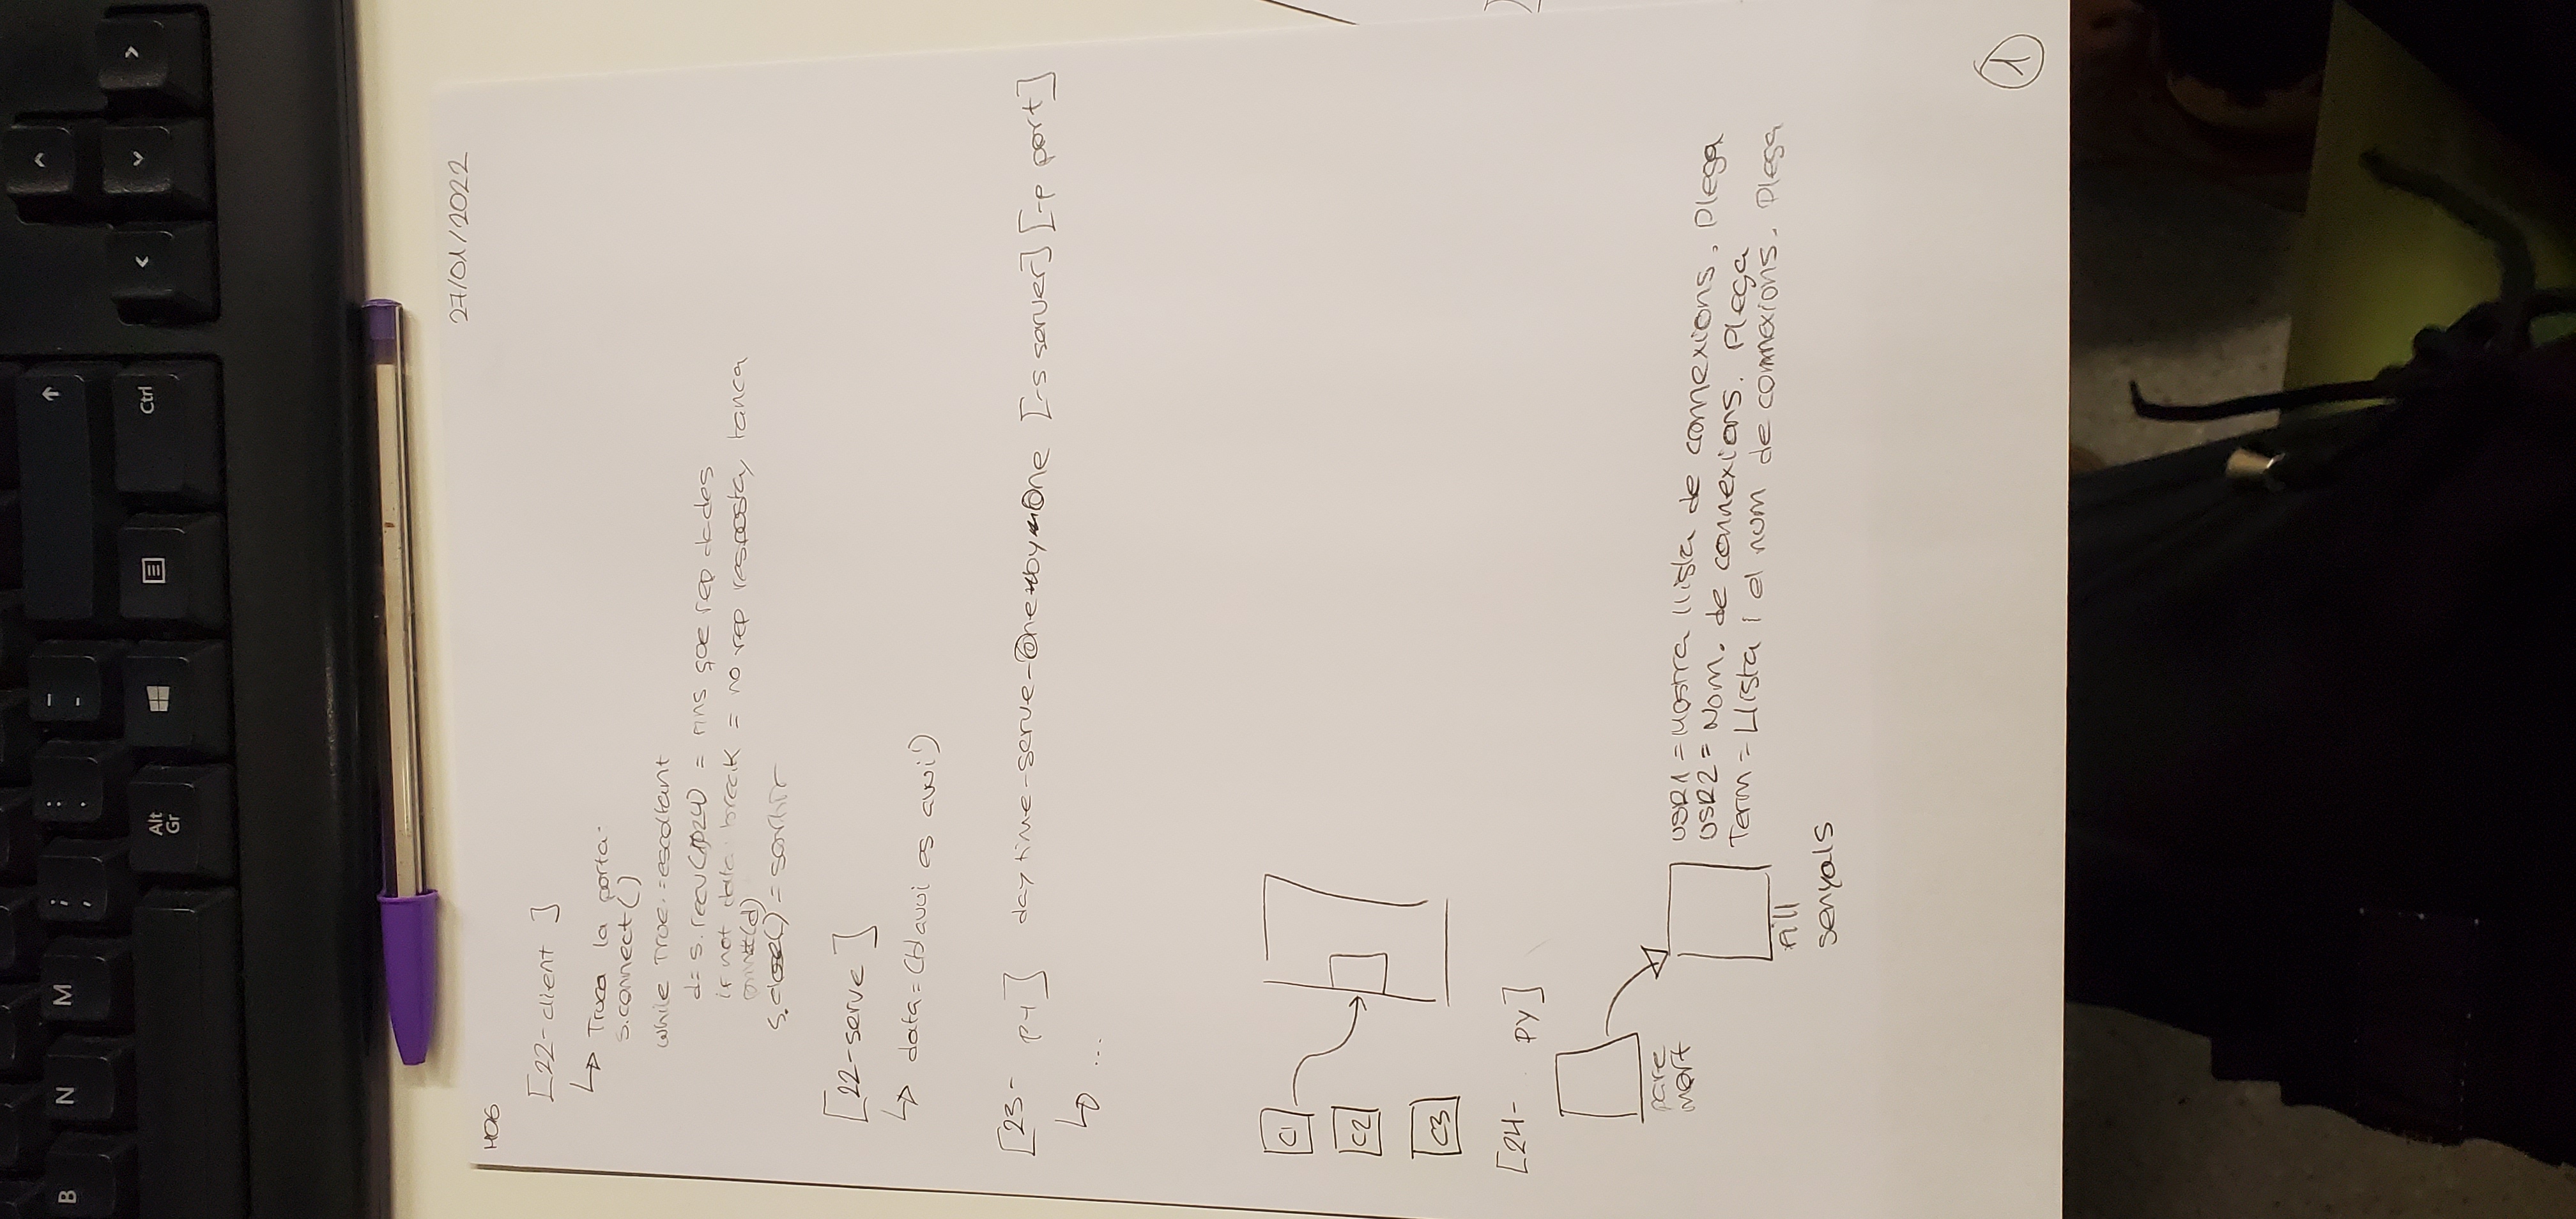 B N M ; , : . - -
Alt Gr Ctrl
27/01/2022
M06
[22-client]
↳ Truca la porta.
s.connect()
while True.=escoltant
d= s.recv(1024) = fins que rep dades
if not data: break = no rep resposta, tanca
print(d)
s.close() = sortir
[22-serve]
↳ data=(b'avui es avui')
[23- py] daytime-serve-One-by-One [-s server] [-p port]
↳ ...
C1
C2
C3
[24- py]
pare
mort
USR1 = Mostra llista de connexions. Plega
USR2 = Nom. de connexions. Plega
Term = Llista i el num de connexions. Plega
fill
senyals
1